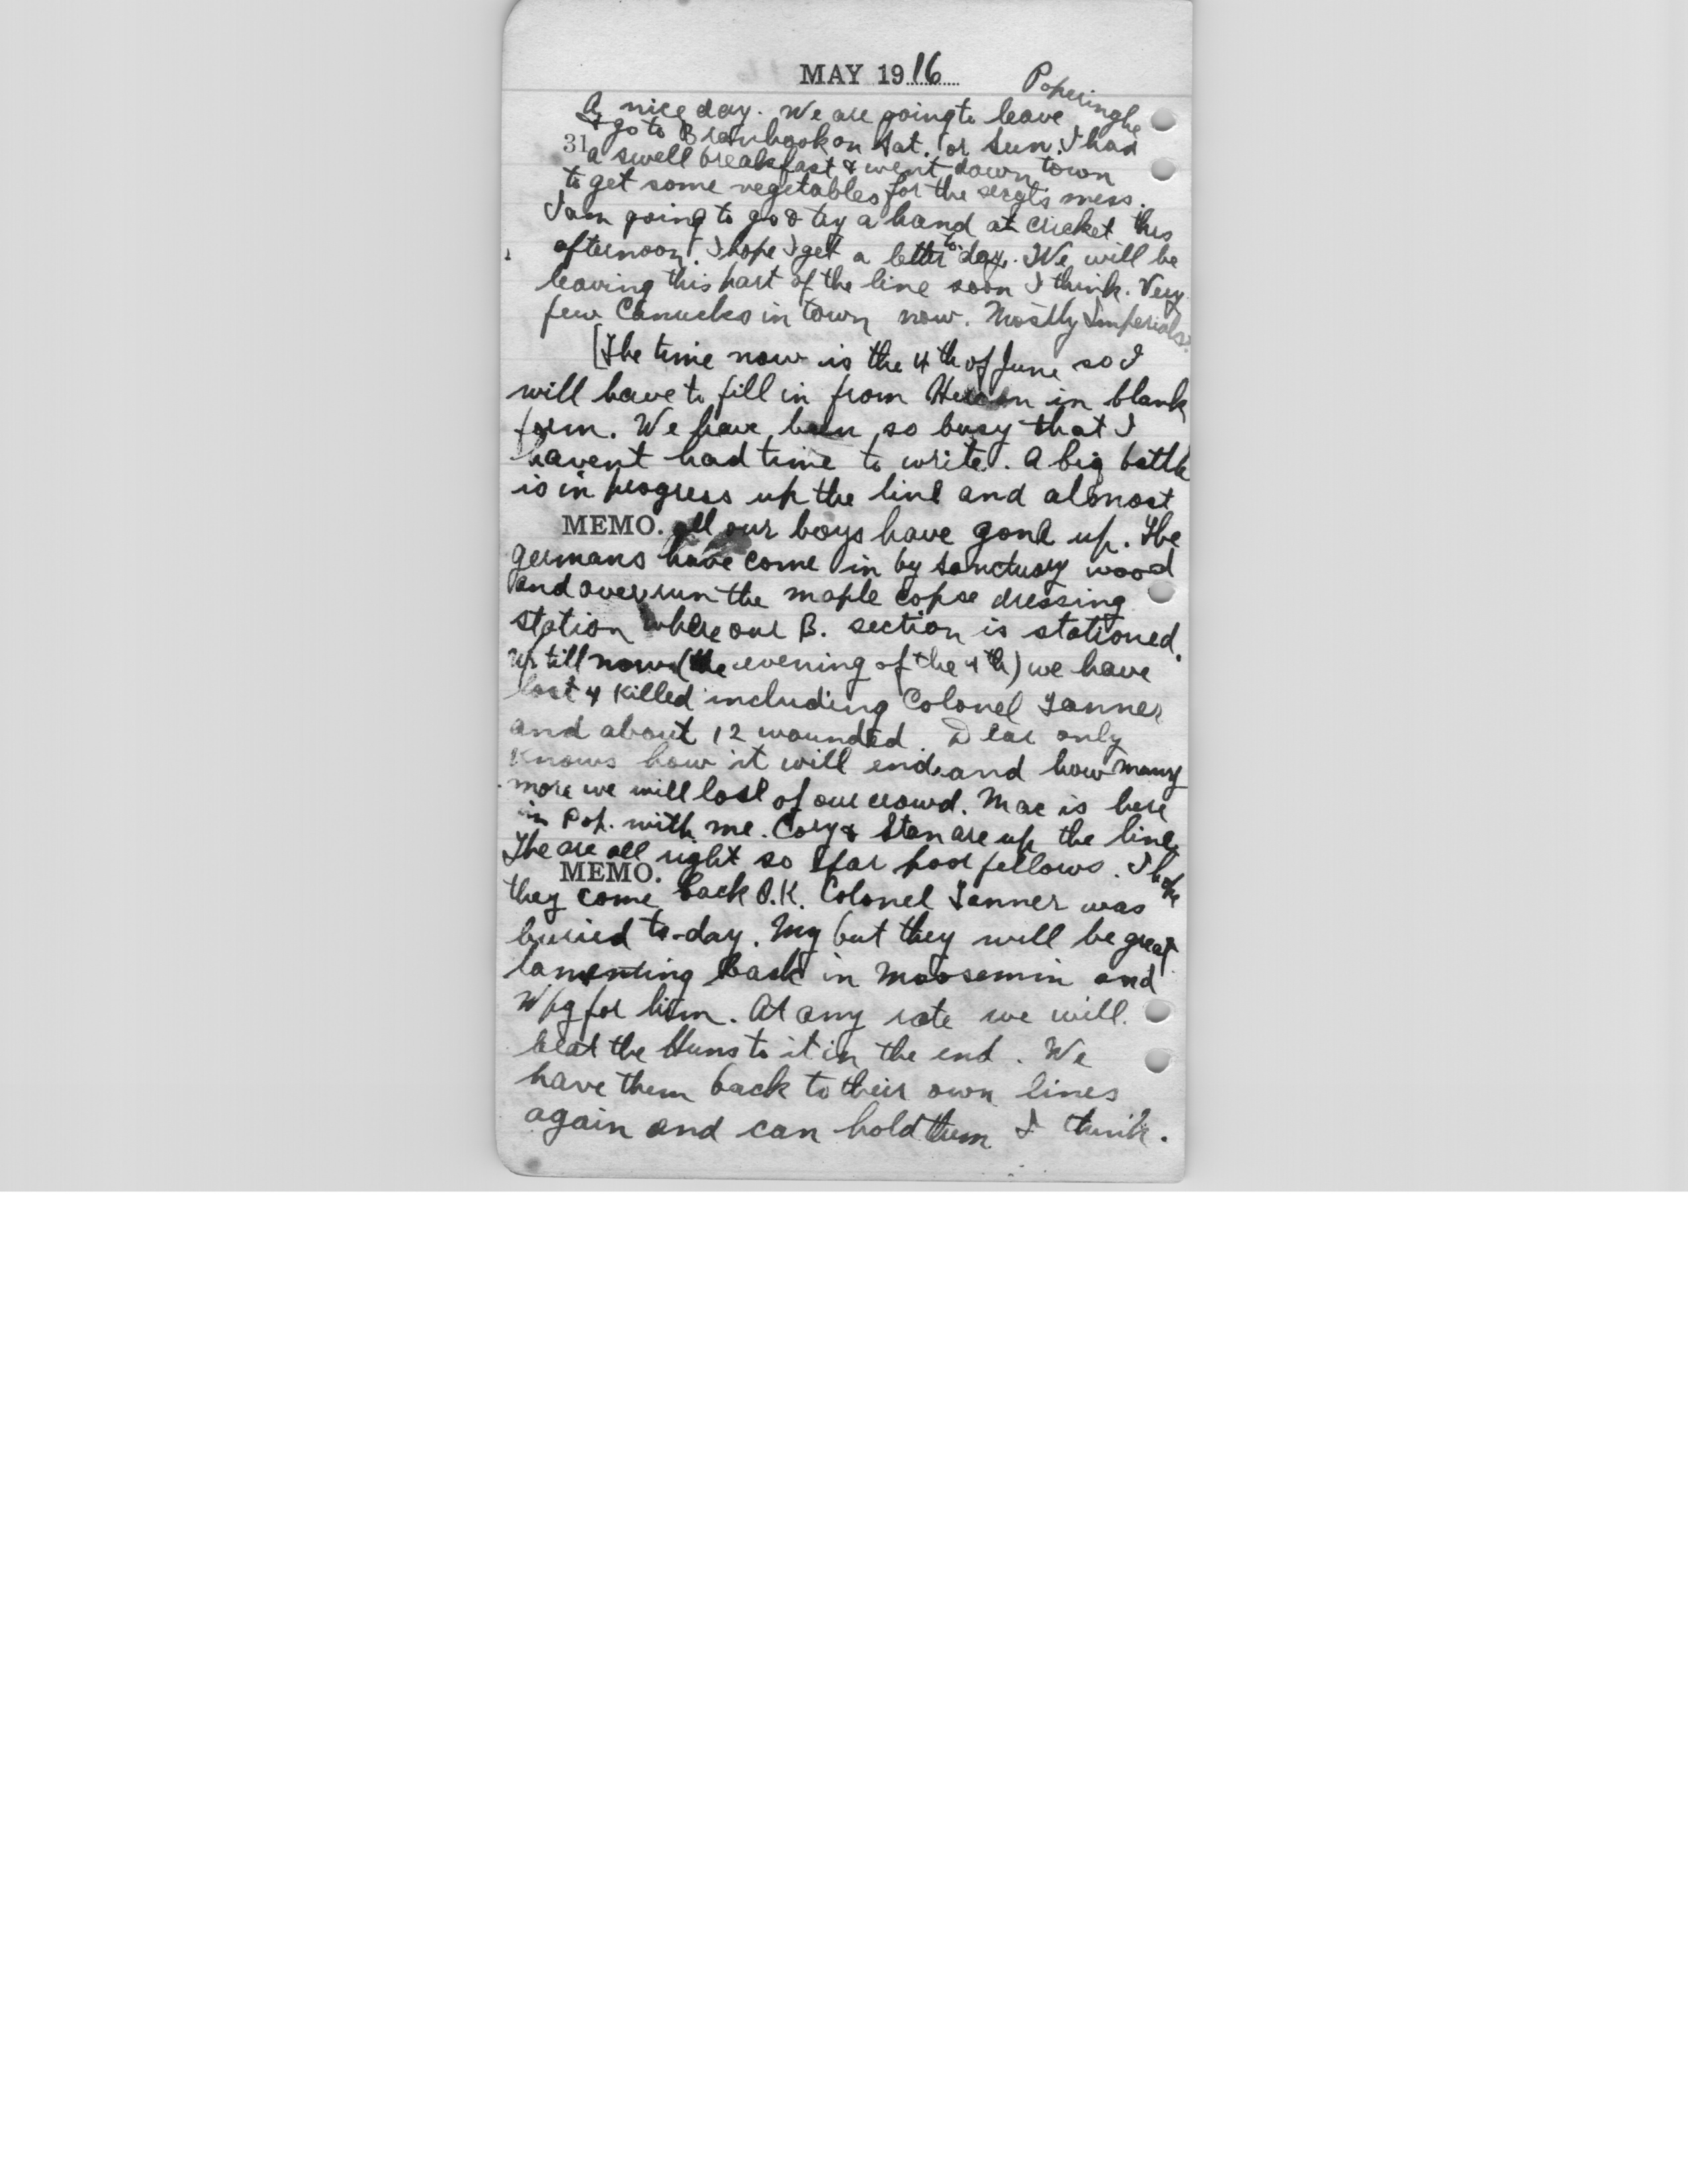 MAY 1916
Poperinghe
A nice day. We are going to leave
& go to Branhook on Sat. or Sun. I had
31 a swell breakfast & went down town
to get some vegetables for the sergts mess.
I am going to go & try a hand at cricket this
afternoon. I hope I get a letter to-day. We will be
leaving this part of the line soon I think. Very
few Canucks in town now. Mostly Imperials.
[The time now is the 4th of June so I
will have to fill in from in blank
form. We have been so busy that I
havent had time to write. A big battle
is in progress up the line and almost
MEMO. all our boys have gone up. The
germans have come in by Sanctuary wood
and overrun the maple copse dressing
station where our B. section is stationed.
Up till now (the evening of the 4th) we have
lost 4 killed including Colonel Tanner
and about 12 wounded. Dear only
knows how it will end and how many
more we will lose of our crowd. Mac is here
in Pop. with me. Cory & Stan are up the line
The are all right so far poor fellows. I hope
MEMO.
they come back O.K. Colonel Tanner was
buried to-day. My but they will be great
lamenting back in Moosemin and
Wpg for him. At any rate we will
beat the Huns to it in the end. We
have them back to their own lines
again and can hold them I think.